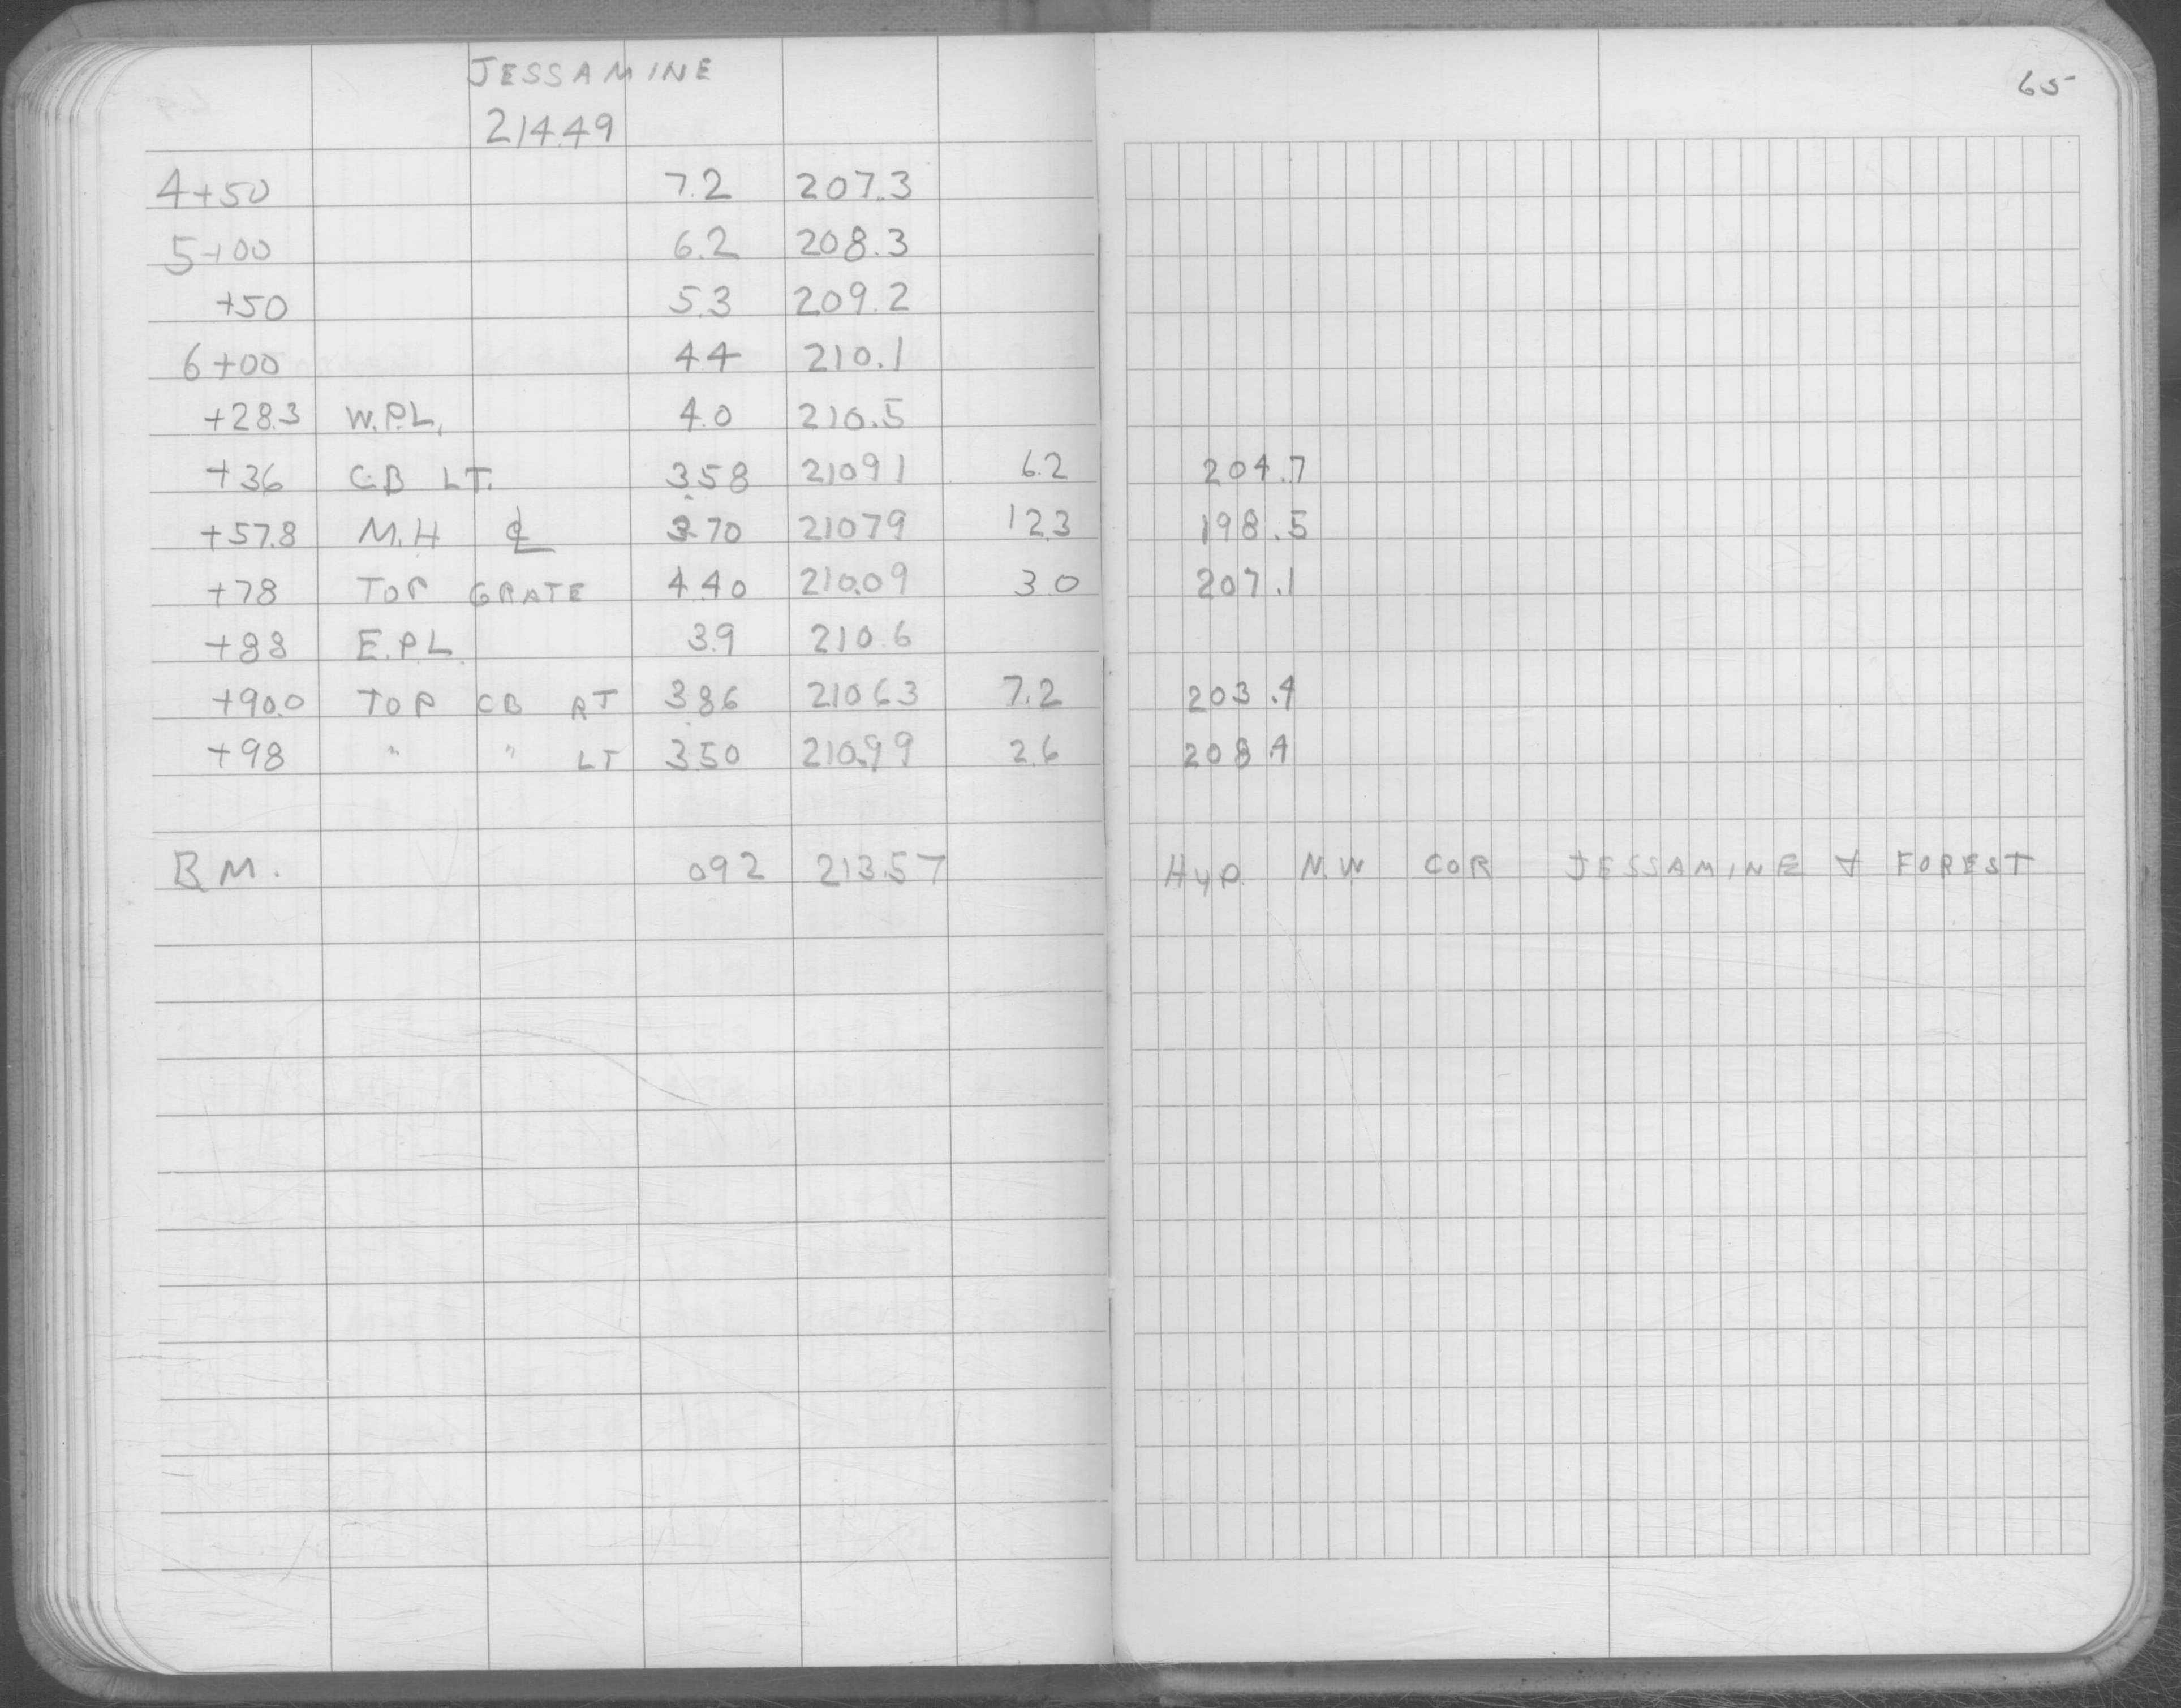 JESSAMINE
65
214.49
4+50 7.2 207.3
5+00 6.2 208.3
+50 5.3 209.2
6+00 4.4 210.1
+28.3 W.P.L. 4.0 210.5
+36 C.B LT. 3.58 210.91 6.2 204.7
+57.8 M.H ℄ 3.70 210.79 12.3 198.5
+78 TOP GRATE 4.40 210.09 3.0 207.1
+88 E.P.L. 3.9 210.6
+90.0 TOP CB RT 3.86 210.63 7.2 203.4
+98 " " LT 3.50 210.99 2.6 208.4
B.M. 0.92 213.57 Hyd. N.W COR JESSAMINE & FOREST